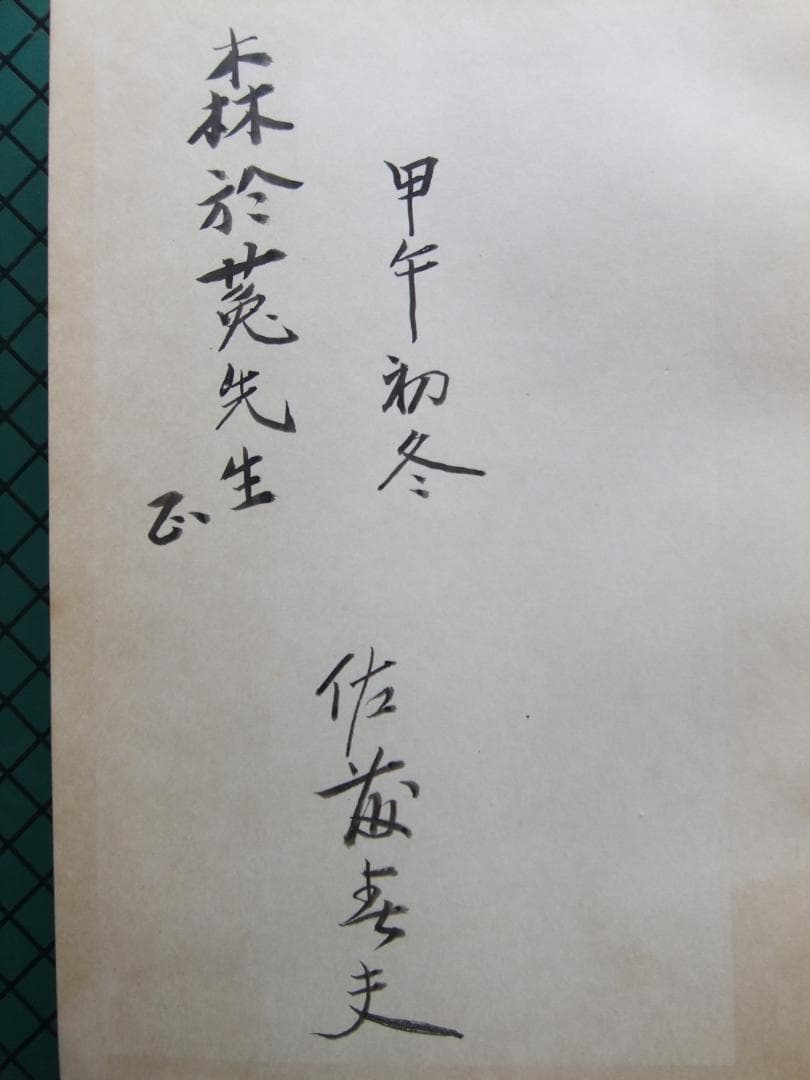 甲午初冬
佐藤春夫
森於菟先生
正